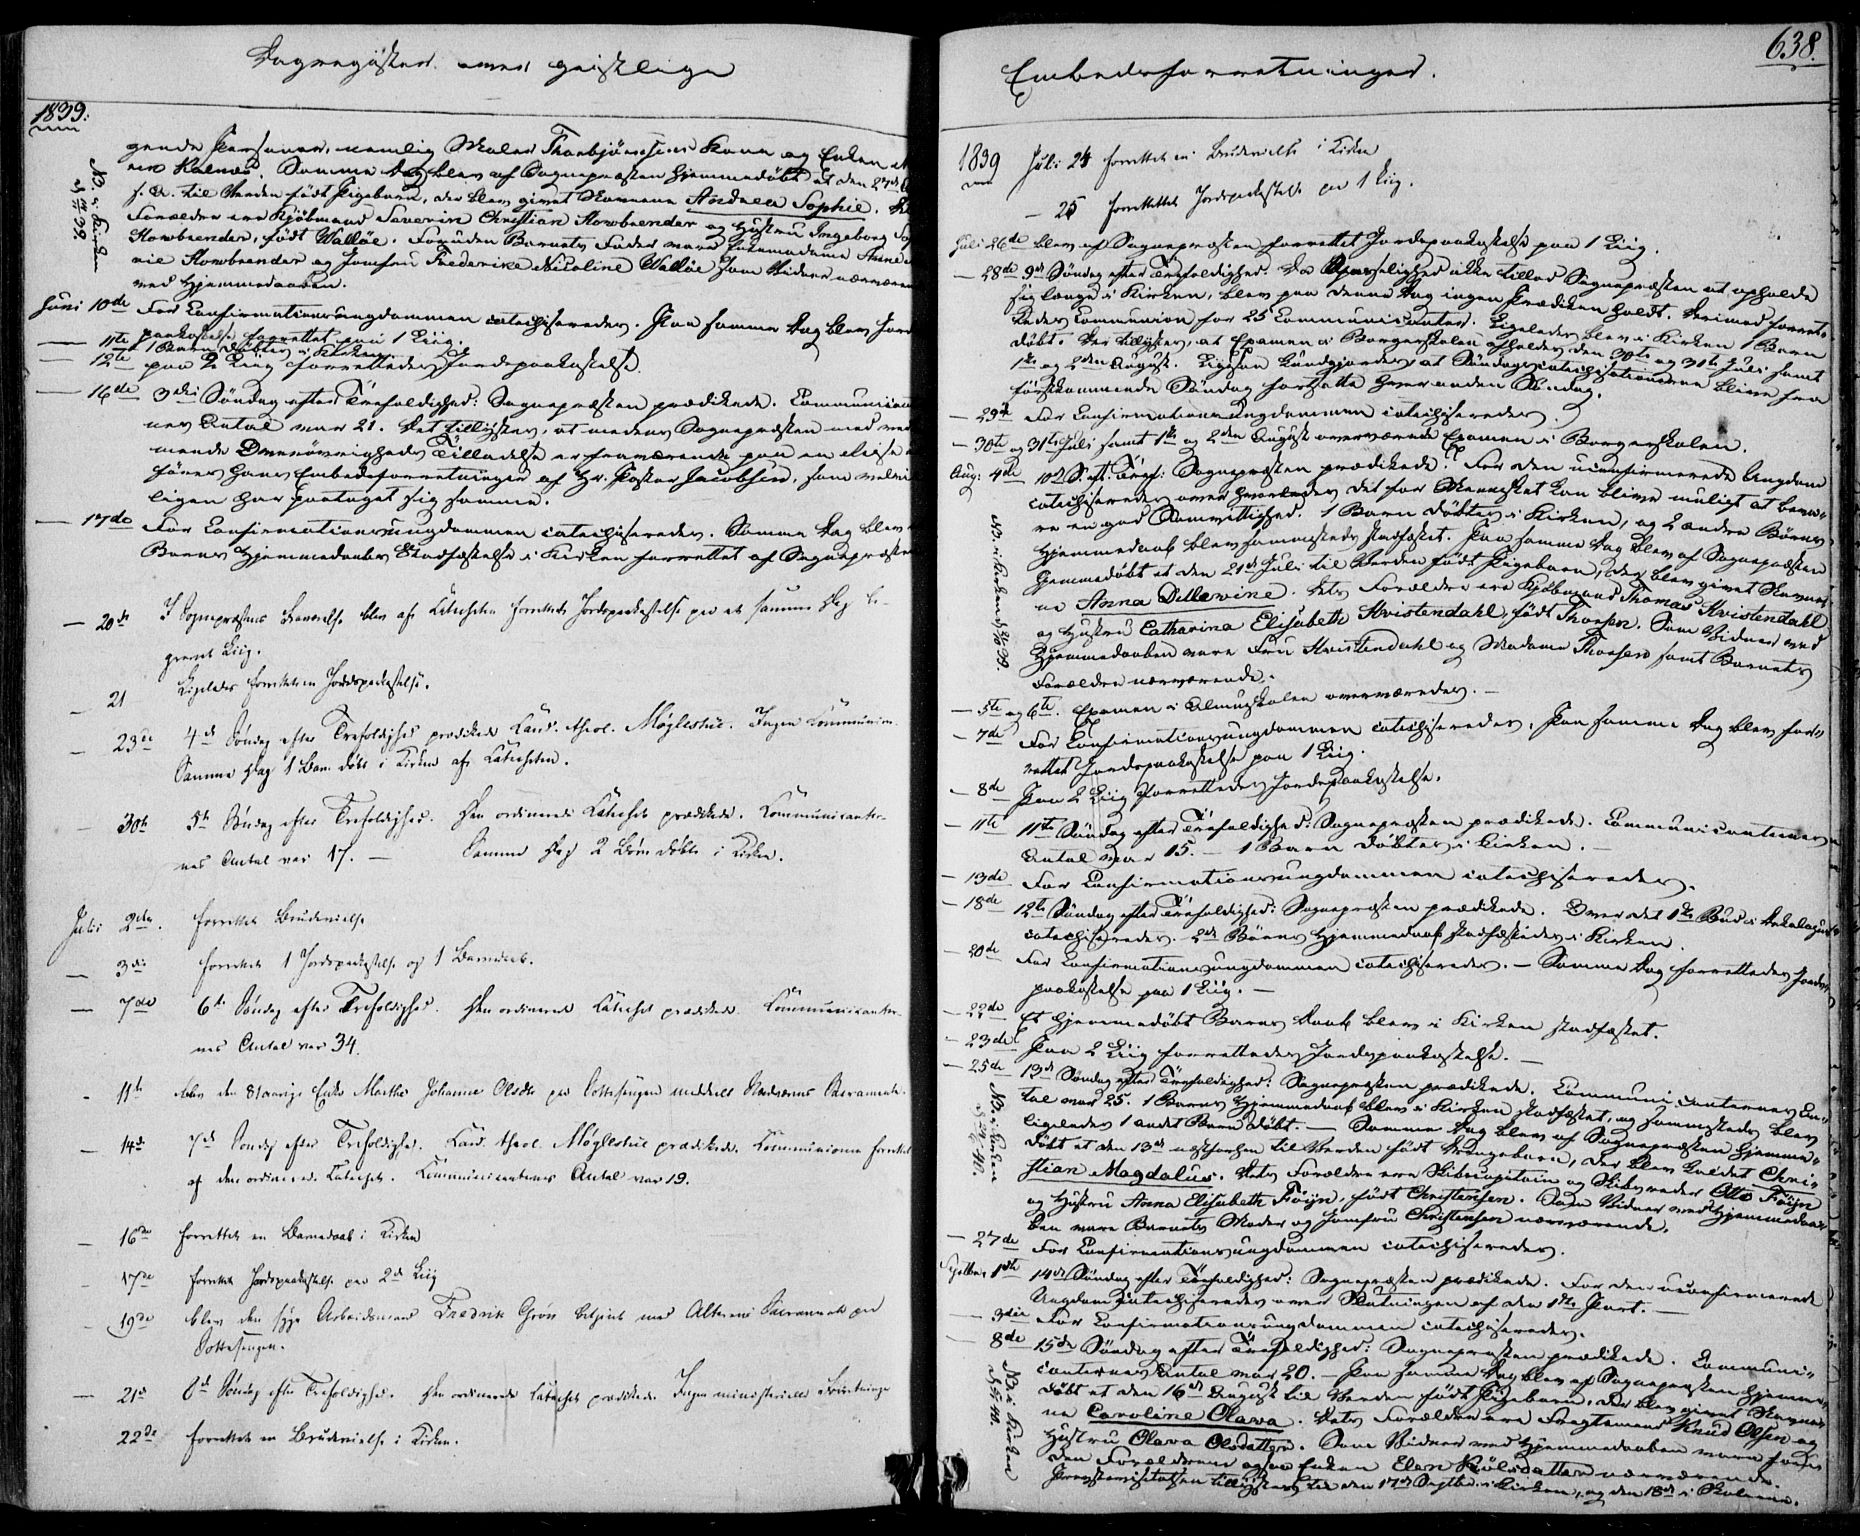 Dagregister over geistlige
1839.
gende Personer, nemlig Maler Thorbjørnsens Kone og Enken
Kalnæs. Samme Dag blev af Sognepræsten hjemmedøbt et den 27de
f. M. til Verden født Pigebarn, der blev givet Navnene Andrea Sophie.
Forældre ere Kjøbmand Severin Christian Howbrender og Hustru Ingeborg
Howbrender, født Walløe. Foruden Barnets Fader vare Madame Anne
rie Howbrender og Jomfru Frederike Nicoline Walløe som Vidner nærværende
ved Hjemmedaaben.
NB. i Kirken
Juni 10de For Confirmationsungdommen catechiseredes. Paa samme Dag blev Jord-
paakastelse forrettet paa 1 Liig.
— 11te 1 Barn døbtes i Kirken.
— 12te paa 2 Liig forrettedes Jordspaakastelse.
— 16de 3die Søndag efter Trefoldighed: Sognepræsten prædikede. Communicanter-
nes Antal var 21. Det tillystes, at medens Sognepræsten med ved-
mende Øvrigheds Tilladelse er fraværende paa en Reise
føres hans Embedsforretninger af Hr. Pastor Jacobsen, som
ligen har paataget sig samme.
— 17de For Confirmationsungdommen catechiseredes. Samme Dag blev
Barns Hjemmedaabs Stadfæstelse i Kirken forrettet af Sognepræsten
— 20de I Sognepræstens Fraværelse blev af Catecheten forrettet Jordspaakastelse paa et samme Dag be-
gravet Liig.
— 21 Ligeledes forrettet en Jordspaakastelse.
— 23de 4de Søndag efter Trefoldighed prædikede Cand. theol. Møglestue. Ingen Communion.
Samme Dag 1 Barn døbt i Kirken af Catecheten.
— 30te 5te Søndag efter Trefoldighed. Den ordinerede Catechet prædikede. Communicanter-
nes Antal var 17. — Samme Dag 2 Børn døbte i Kirken.
Juli 2den. forrettet Brudevielse
— 3die forrettet 1 Jordspaakastelse og 1 Barnedaab.
— 7de 6te Søndag efter Trefoldighed. Den ordinerede Catechet prædikede. Communicanter-
nes Antal var 34.
- 11te blev den 81aarige Enke Marthe Johanne Olsdtr paa Sottesengen meddelt Nadverens Sacramente.
— 14de 7de Søndag efter Trefoldighed. Cand. theol. Møglestue prædikede. Communionen forrettet
af den ordinerede Catechet. Communicanternes Antal var 19.
— 16de forrettet en Barnedaab i Kirken
— 17de forrettet Jordspaakastelse paa 2de Liig
— 19de blev den syge Arbeidsmand Fredrik Grøn betjent med Alterens Sacramente paa
Sottesengen.
— 21de 8de Søndag efter Trefoldighed. Den ordinerede Catechet prædikede. Ingen ministerielle Forretninger
22de forrettet en Brudevielse i Kirken.
Embedsforretninger.
638.
1839 Juli 24 forrettet en Brudevielse i Kirken
— 25 forrettet Jordpaakastelse paa 1 Liig.
Juli 26de blev af Sognepræsten forrettet Jordspaakastelse paa 1 Liig.
— 28de 9de Søndag efter Trefoldighed. Da Upasselighed ikke tillod Sognepræsten at opholde
sig længe i Kirken, blev paa denne Dag ingen Prædiken holdt. Derimod forret-
tedes Communion for 25 Communicanter. Ligeledes blev i Kirken 1 Barn
døbt. Der tillystes, at Examen i Borgerskolen afholdes den 30te og 31te Juli samt
1ste og 2den August. Ligesaa kundgjordes at Søndagscatechisationerne blive fra
førstkommende Søndag fortsatte hver anden Søndag.
— 29de For Confirmationsungdommen catechiseredes.
— 30te og 31te Juli samt 1ste og 2den August overværede Examen i Borgerskolen.
Aug: 4de 10de S. eft. Tref: Sognepræsten prædikede. For den uconfirmerede Ungdom
catechiseredes over hvorledes det for Mennesket kan blive muligt at beva-
re en god Samvittighed. 1 Barn døbtes i Kirken, og 2 andre Børns
Hjemmedaab blev sammesteds stadfæstet. Paa samme Dag blev af Sognepræsten
hjemmedøbt et den 21de Juli til Verden født Pigebarn, der blev givet Navne-
ne Anna Dillevine. Dets Forældre ere Kjøbmand Thomas Kvistendahl
og Hustru Catharina Elisabeth Kvistendahl, født Thorsen. Som Vidner ved
Hjemmedaaben vare Fru Kvistendahl og Madame Thorsen samt Barnets
Forældre nærværende.
NB. i Kirken
— 5te og 6te. Examen i Almueskolen overværedes. —
— 7de For Confirmationsungdommen catechiseredes. Paa samme Dag blev for-
rettet Jordspaakastelse paa 1 Liig.
— 8de Paa 2 Liig forrettedes Jordspaakastelse.
— 11te 11te Søndag efter Trefoldighed: Sognepræsten prædikede. Communicanternes
Antal var 15. — 1 Barn døbtes i Kirken. —
— 13de For Confirmationsungdommen catechiseredes.
— 18de 12te Søndag efter Trefoldighed: Sognepræsten prædikede. Over det 1ste Bud i Dekalogus
catechiseredes. 2de Børns Hjemmedaab stadfæstedes i Kirken.
— 20de For Confirmationsungdommen catechiseredes. — Samme Dag forrettedes Jords-
paakastelse paa 1 Liig. —
— 22de Et hjemmedøbt Barns Daab blev i Kirken stadfæstet.
— 23de Paa 2 Liig forrettedes Jordspaakastelse. —
— 25de 13de Søndag efter Trefoldighed: Sognepræsten prædikede. Communicanternes An-
tal var 25. 1 Barns Hjemmedaab blev i Kirken stadfæstet, og sammesteds blev
ligeledes 1 andet Barn døbt. — Samme Dag blev af Sognepræsten hjemme-
døbt et den 13de nestforhen til Verden født Drengebarn, der blev kaldet Chri-
stian Magdalus. Dets Forældre ere Skibscapitain og Skibsreder Otto Føyn
og Hustru Anna Elisabeth Føyn, født Christensen. Som Vidner ved Hjemmedaa-
ben vare Barnets Moder og Jomfru Christensen nærværende.
NB. i Kirken
— 27de For Confirmationsungdommen catechiseredes.
Septbr. 1ste 14de Søndag efter Trefoldighed: Sognepræsten prædikede. For den uconfirmerede
Ungdom catechiseredes over Slutningen af den 1ste Part. —
— 3die For Confirmationsungdommen catechiseredes.
— 8de 15de Søndag efter Trefoldighed: Sognepræsten prædikede. Communi-
canternes Antal var 20. — Paa samme Dag blev af Sognepræsten hjemme-
døbt et den 16de August til Verden født Pigebarn, der blev givet Navne-
ne Caroline Olava. Dets Forældre ere Fragtemand Knud Olsen og
Hustru Olava Olsdatter. Som Vidner ved Hjemmedaaben vare for-
uden Forældrene ogsaa Enken Elen Nielsdatter nærværende.
Provstevisitatsen tillystes til den 17de Septbr. i Kirken, og den 18de i Skolerne.
NB. i Kirken